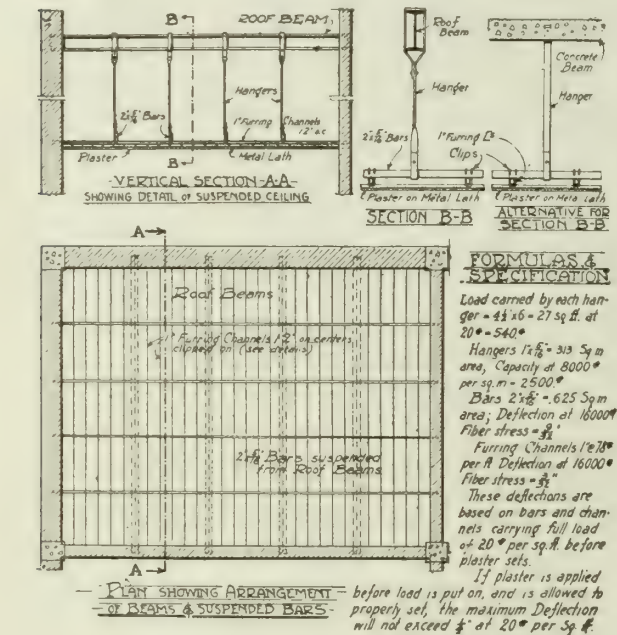 B
ROOF BEAM
2"x5/16" Bars
Hangers
1" Furring Channels
12" o.c.
Plaster
B
Metal Lath
-VERTICAL SECTION-A-A-
SHOWING DETAIL of SUSPENDED CEILING
Roof
Beam
Hanger
2"x5/16" Bars
Plaster on Metal Lath
SECTION B-B
Concrete
Beam
Hanger
1" Furring [s
Clips
Plaster on Metal Lath
ALTERNATIVE FOR
SECTION B-B
A
Roof Beams
1" Furring Channels 1'-2" on centers
clipped on (see details)
2"x5/16" Bars suspended
from Roof Beams
A
-PLAN SHOWING ARRANGEMENT-
-OF BEAMS & SUSPENDED BARS-
FORMULAS &
SPECIFICATION
Load carried by each han-
ger = 4½'x6' = 27 sq ft. at
20# = 540#
Hangers 1"x5/16" = .313 Sq in
area, Capacity at 8000#
per sq.in = 2500.#
Bars 2"x5/16" = .625 Sq in
area; Deflection at 16000#
Fiber stress =
Furring Channels 1"@
per ft Deflection at 16000#
Fiber stress =
These deflections are
based on bars and chan-
nels carrying full load
of 20# per sq.ft. before
plaster sets.
If plaster is applied
before load is put on, and is allowed to
properly set, the maximum Deflection
will not exceed at 20# per Sq. ft.